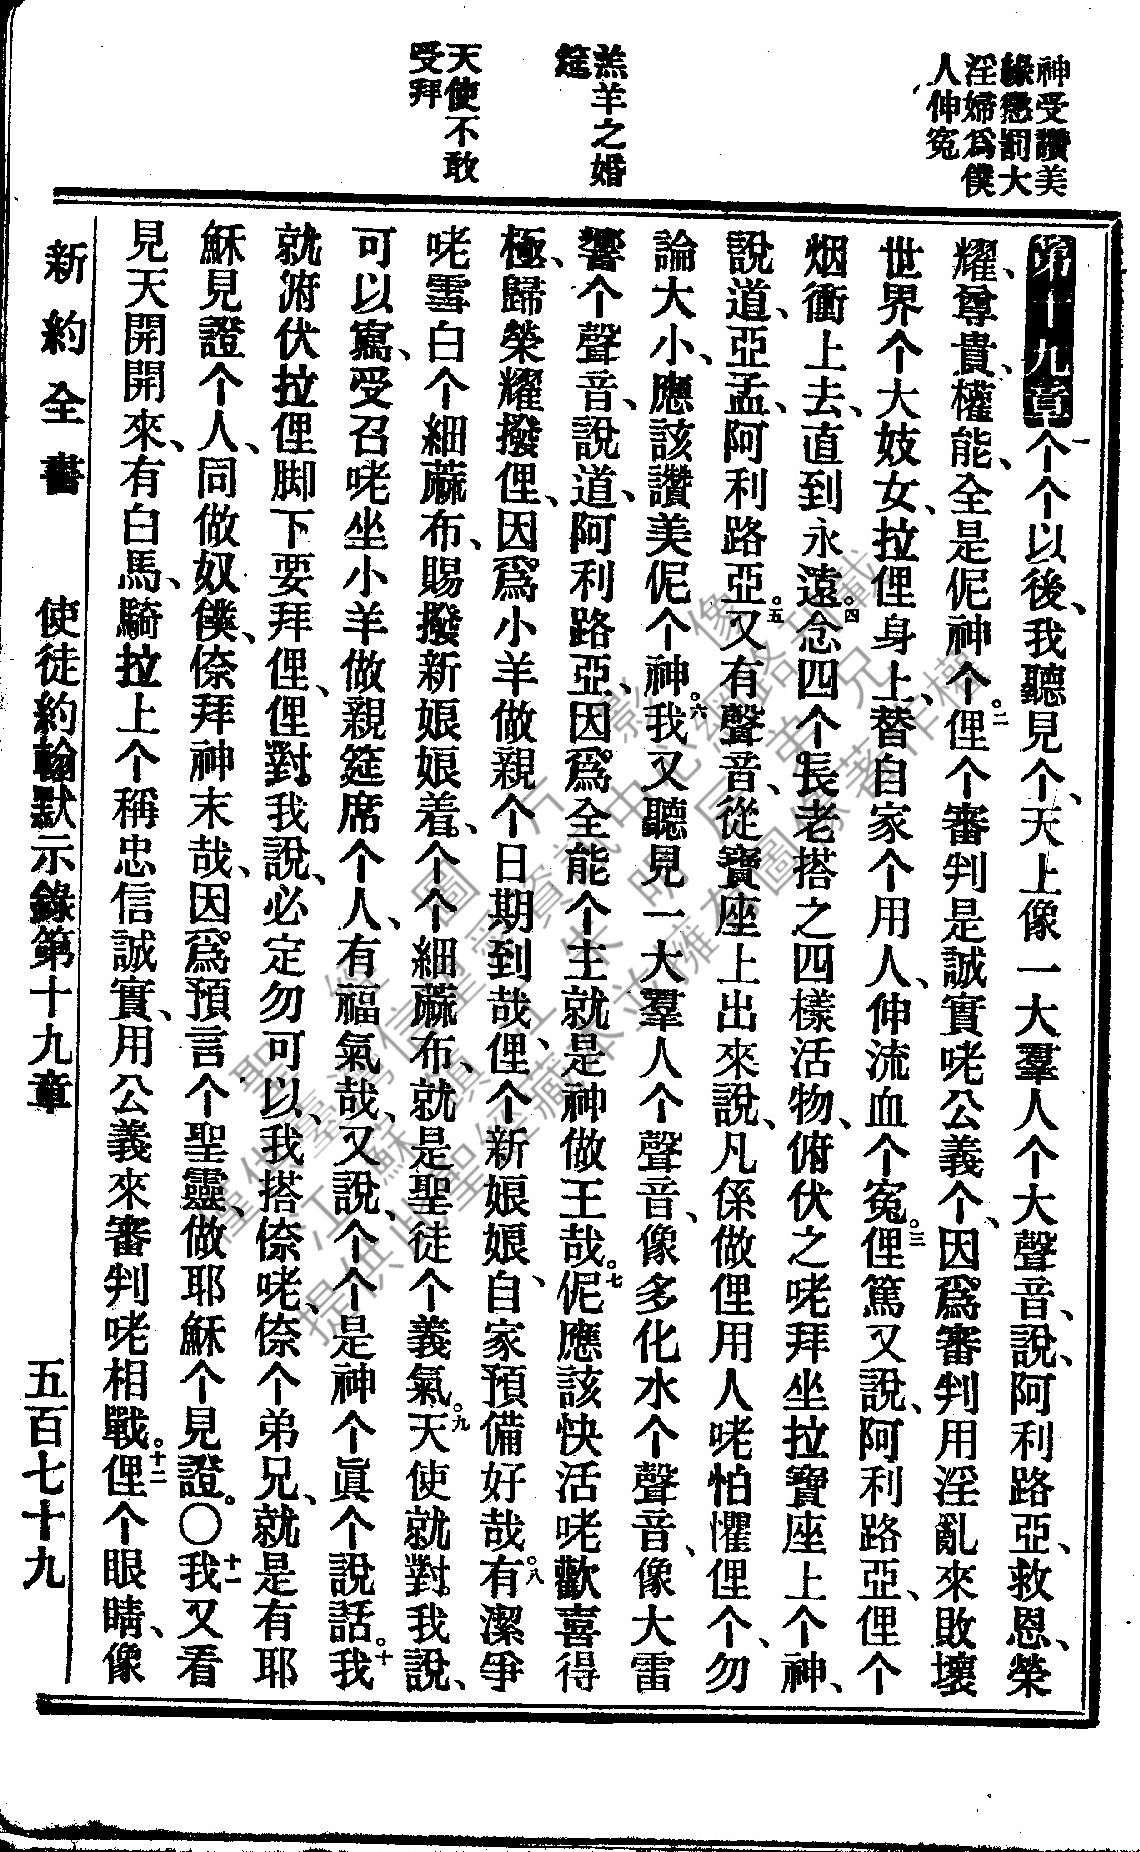 神受讚美
緣懲罰大
淫婦爲僕
人伸冤
羔羊之婚
筵
天使不敢
受拜
第十九章一个个以後、我聽見个、天上像一大羣人个大聲音、說、阿利路亞、救恩、榮
耀、尊貴、權能、全是伲神个。二俚个審判是誠實咾公義个、因爲審判用淫亂來敗壞
世界个大妓女、拉俚身上、替自家个用人、伸流血个冤。三俚篤又說、阿利路亞、俚个
烟衝上去、直到永遠。四念四个長老搭之四樣活物、俯伏之咾拜坐拉寶座上个神、
說道、亞孟、阿利路亞。五又有聲音、從寶座上出來說、凡係做俚用人咾怕懼俚个、勿
論大小、應該讚美伲个神。六我又聽見一大羣人个聲音、像多化水个聲音、像大雷
響个聲音、說道、阿利路亞、因爲全能个主就是神做王哉。七伲應該快活咾歡喜得
極、歸榮耀撥俚、因爲小羊做親个日期到哉、俚个新娘娘、自家預備好哉。八有潔爭
咾雪白个細蔴布、賜撥新娘娘着、个个細蔴布、就是聖徒个義氣。九天使就對我說、
可以寫、受召咾坐小羊做親筵席个人、有福氣哉、又說、个个是神个眞个說話。十我
就俯伏拉俚脚下要拜俚、俚對我說、必定勿可以、我搭倷咾、倷个弟兄、就是有耶
穌見證个人、同做奴僕、倷拜神末哉、因爲預言个聖靈、做耶穌个見證。〇十一我又看
見天開開來、有白馬、騎拉上个稱忠信誠實、用公義來審判咾相戰。十二俚个眼睛、像
新約全書　使徒約翰默示錄第十九章　五百七十九
聖經圖片影像
僅供臺灣信望愛資訊中心網路刊載
江蘇鎮江朱明辰弟兄
提供此聖經藏本並擁有圖像著作權